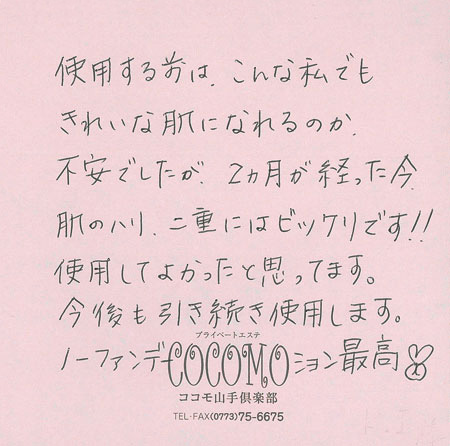 使用する前は、こんな私でも
きれいな肌になれるのか、
不安でしたが、2ヵ月が経った今、
肌のハリ、二重にはビックリです!!
使用してよかったと思ってます。
今後も引き続き使用します。
プライベートエステ
ノーファンデーション最高
COCOMO
ココモ山手倶楽部
TEL・FAX(0773)75-6675